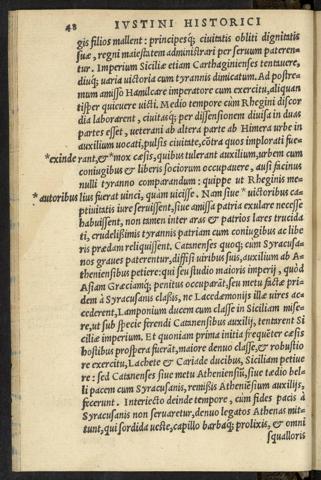 48 IVSTINI HISTORICI
gis filios mallent: principesq́; ciuitatis obliti dignitatis
suæ, regni maiestatem administrari per seruum pateren-
tur. Imperium Siciliæ etiam Carthaginienses tentauere,
diuq́; uaria uictoria cum tyrannis dimicatum. Ad postre-
num amisso Hamilcare imperatore cum exercitu, aliquan
tisper quieuere uicti. Medio tempore cum Rhegini discor
dia laborarent, ciuitasq́; per dissensionem diuisa in duas
partes esset, ueterani ab altera parte ab Himera urbe in
auxilium uocati, pulsis ciuitate, cōtra quos implorati fue-
*exinde rant, & *mox cæsis, quibus tulerant auxilium, urbem cum
coniugibus & liberis sociorum occupauere, ausi facinus
nulli tyranno comparandum: quippe ut Rheginis me-
*autoribus lius fuerat uinci, quàm uicisse. Nam siue *uictoribus ca-
ptiuitatis iure seruissent, siue amissa patria exulare necesse
habuissent, non tamen inter aras & patrios lares trucida
ti, crudelißimis tyrannis patriam cum coniugibus ac libe
ris prædam reliquissent. Catanenses quoq́; cum Syracusa-
nos graues paterentur, diffisi uiribus suis, auxilium ab A-
theniensibus petiere: qui seu studio maioris imperij, quòd
Asiam Græciamq́; penitus occuparāt, seu metu factæ pri-
dem à Syracusanis classis, ne Lacedæmonijs illæ uires ac-
cederent, Lamponium ducem cum classe in Siciliam mise-
re, ut sub specie ferendi Catanensibus auxilij, tentarent Si
ciliæ imperium. Et quoniam prima initia frequēter cæsis
hostibus prospera fuerāt, maiore denuo classe, & robustio
re exercitu, Lachete & Cariade ducibus, Siciliam petiue
re: sed Catanenses siue metu Atheniensiū, siue tædio bel-
li pacem cum Syracusanis, remißis Atheniēsium auxilijs,
fecerunt. Interiecto deinde tempore, cùm fides pacis à
Syracusanis non seruaretur, denuo legatos Athenas mit-
tunt, qui sordida ueste, capillo barbaq́; prolixis, & omni
squalloris